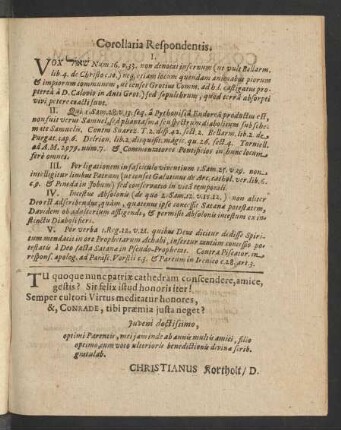 Corollaria Respondentis.
I.
VOX שאול Num. 16. v. 33. non denotat infernum (ut vult Bellarm.
lib. 4. de Christo c. 10.) neq; etiam locum quendam animabus piorum
& impiorum communem, ut censet Grotius Comm. ad h. l. castigatus pro-
pterea à D. Calovio in Anti Grot.) sed sepulchrum, quòd terrâ absorpti
vivi petere coacti sunt.
II. Qui 1. Sam. 28. v. 13. seq. à Pythonissâ Endoreâ productus est,
non fuit verus Samuel, sed phantasma seu spectrum diabolicum sub sche-
mate Samuelis. Contra Suarez. T. 2. disp. 42. sect. 2. Bellarm. lib. 2. de
Purgat. cap. 6. Delrion. lib. 2. disquisit. magic. qu. 26. sect. 2. Torniell.
ad A. M. 2979. num. 7. & Commentatores Pontificios in hunc locum
ferè omnes.
III. Per ligationem in fasciculo viventium 1. Sam. 25. v. 29. non
intelligitur limbus Patrum (ut censet Galatinus de Arc. cathol. ver. lib. 6.
c. 9. & Pineda in Jobum) sed conservatio in vitâ temporali.
IV. Incestus Absolonis (de quo 2. Sam. 12. v. 11. 12.) non aliter
Deo est adscribendus, quàm, quatenus ipse concessit Satanæ potestatem,
Davidem ob adulterium affligendi, & permisit Absolonis incestum ex in-
stinctu Diaboli fieri.
V. Per verba 1. Reg. 22. v. 21. quibus Deus dicitur dedisse Spiri-
tum mendacii in ore Prophetarum Achabi, innuitur tantùm concessio po-
testatis à Deo facta Satanæ in Pseudo-Prophetas. Contra Piscator. in
respons. apolog. ad Parasc. Vorstii c. 3. & Paræum in Irenico c. 28. art. 3.
TU quoque nunc patriæ cathedram conscendere, amice,
gestis? Sit felix istud honoris iter!
Semper cultori Virtus meditatur honores,
&, CONRADE, tibi præmia justa neget?
Juveni doctissimo,
optimi Parentis, mei jam endrab annis multis amici, filio
optimo, cum voto ulterioris benedictionis divinæ scrib.
gratulab.
CHRISTIANUS Kortholt / D.